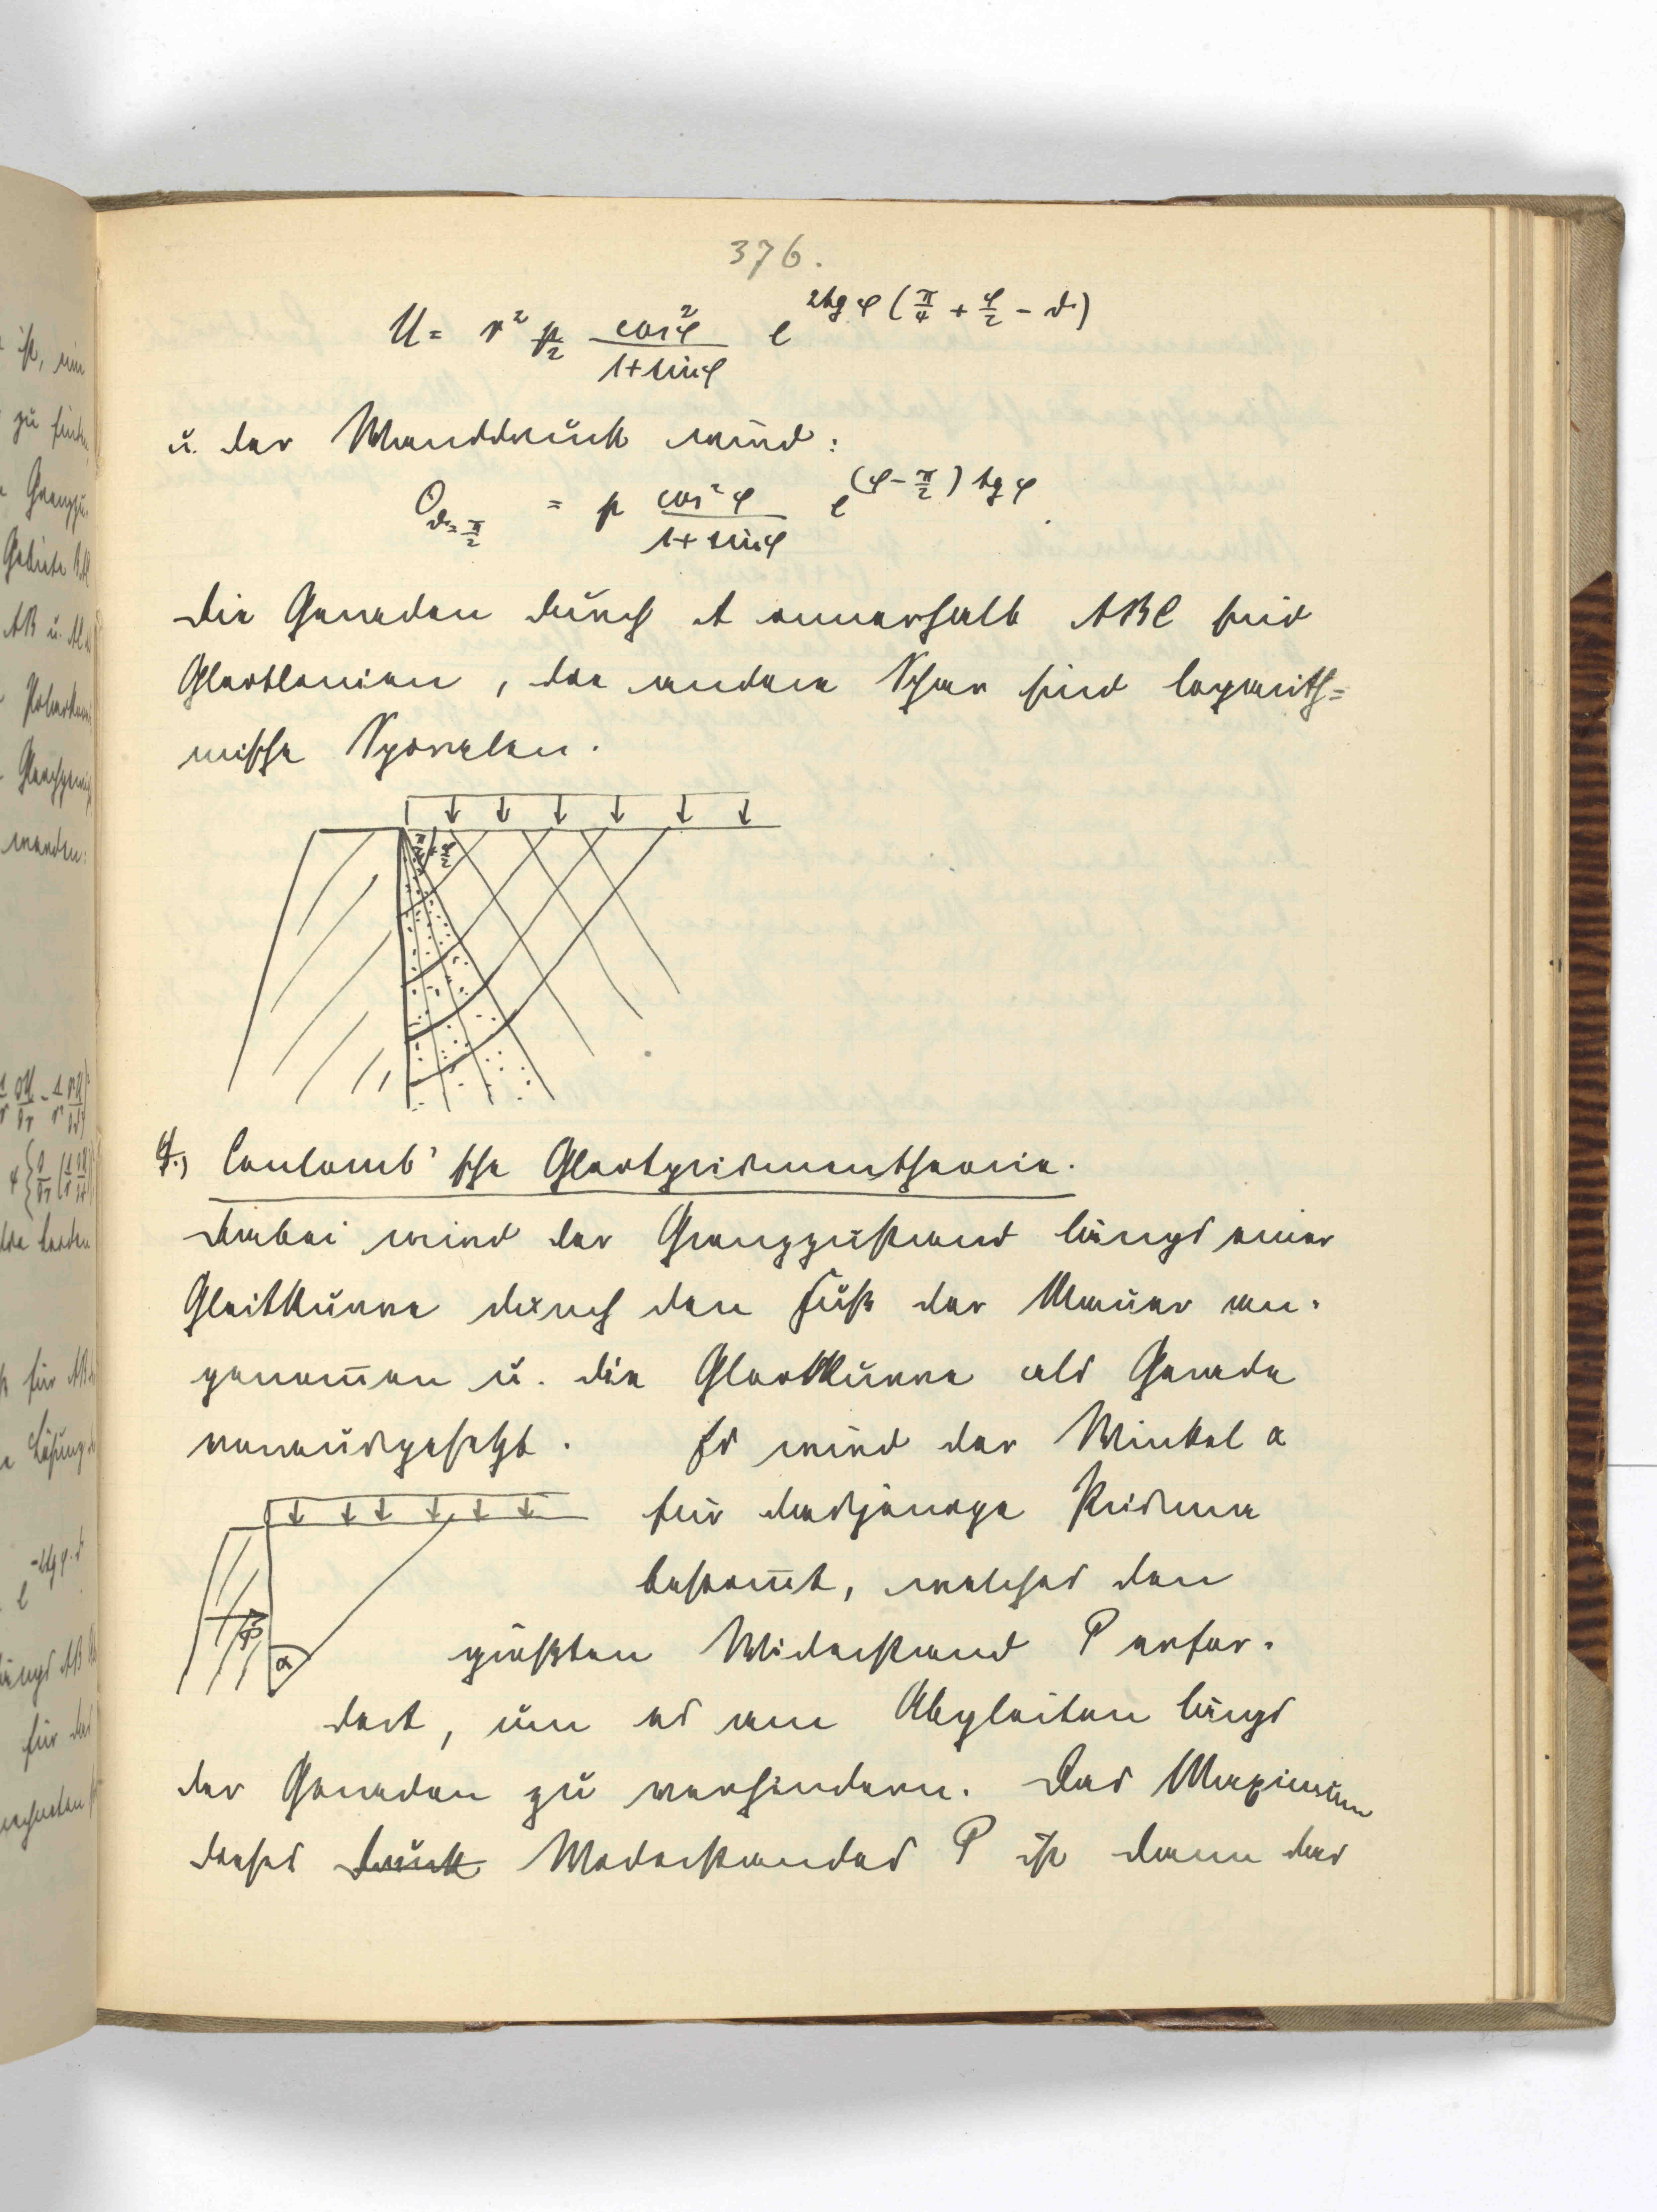 376.
U = r² p/2 cos²φ/(1+sinφ) e^{2tgφ(π/4 + φ/2 - ϑ)}
u. der Wanddruck wird:
σ_{ϑ=π/2} = p cos²φ/(1+sinφ) e^{(φ-π/2)tgφ}.
Die Geraden durch A innerhalb ABC sind
Gleitlinien, die andere Schar sind logarith=
mische Spiralen.
π/4 + φ/2
4.) Coulomb'sche Gleitprismentheorie.
Dabei wird der Grenzzustand längs einer
Gleitkurve durch den Fuß der Mauer an-
genom̅en u. die Gleitkurve als Gerade
vorausgesetzt. Es wird der Winkel α
für dasjenige Prisma
bestim̅t, welches den
größten Widerstand P erfor-
dert, um es am Abgleiten längs
der Geraden zu verhindern. Das Maximum
dieses Druck Widerstandes P ist dann das
P
α